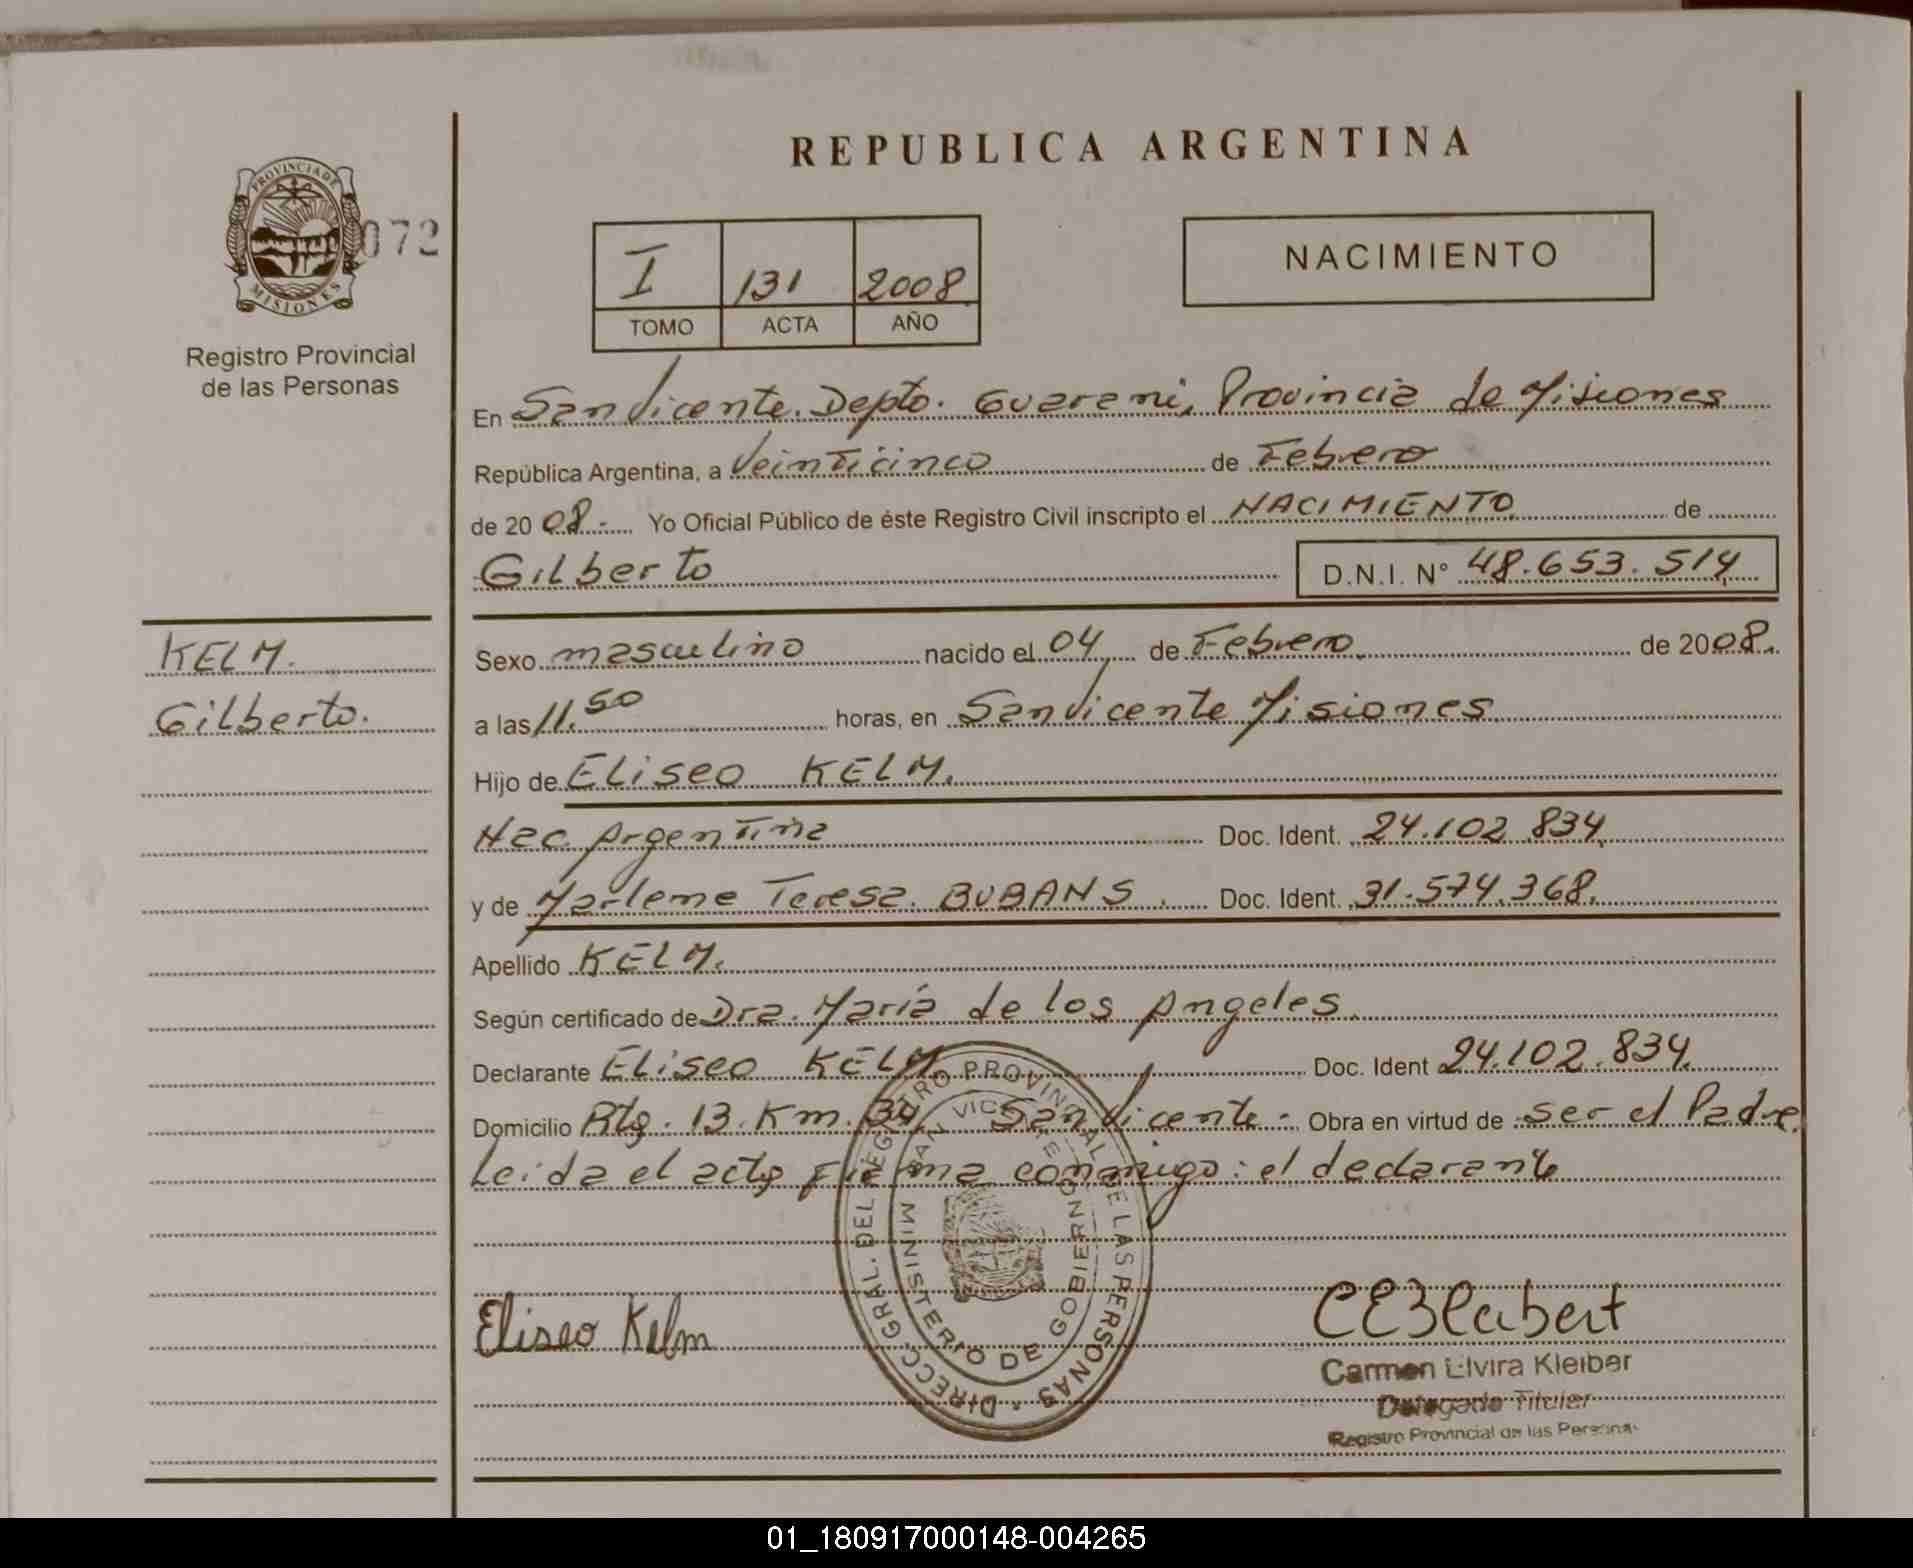 REPUBLICA ARGENTINA
PROVINCIA DE
MISIONES
072
Registro Provincial
de las Personas
I 131 2008
TOMO ACTA AÑO
NACIMIENTO
En San Vicente. Depto. Guarani, Provincia de Misiones
República Argentina, a Veinticinco de Febrero
de 20 08.- Yo Oficial Público de éste Registro Civil inscripto el NACIMIENTO de
Gilberto D.N.I. N° 48.653.514
KELM.
Gilberto.
Sexo masculino nacido el 04 de Febrero. de 2008.
a las 11.50 horas, en San Vicente Misiones
Hijo de Eliseo KELM.
Nac. Argentina Doc. Ident. 24.102.834
y de Marlene Teresa. BUBANS. Doc. Ident. 31.574.368.
Apellido KELM.
Según certificado de Dra. María de los Angeles.
Declarante Eliseo KELM Doc. Ident 24.102.834.
Domicilio Rta. 13. Km. 34. San Vicente.- Obra en virtud de ser el Padre.
Leida el acta firma conmigo: el declarante
DIRECC. GRAL. DEL REGISTRO PROVINCIAL DE LAS PERSONAS
SAN VICENTE
MINISTERIO DE GOBIERNO
Eliseo Kelm
Carmen Elvira Kleiber
Delegado Titular
Registro Provincial de las Personas
01_180917000148-004265